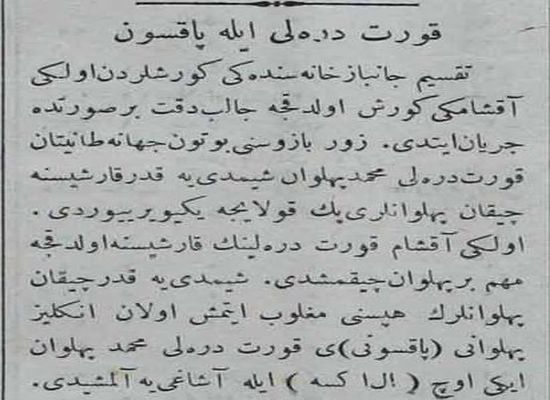 قورت دره‌لی ایله پاقسون
تقسیم جانبازخانه‌سنده‌کی کورشلردن اولکی
آقشامکی کورش اولدقجه جالب دقت بر صورتده
جریان ایتدی. زور بازوسنی بوتون جهانه طانیتان
قورت دره‌لی محمد پهلوان شیمدی‌یه قدر قارشیسنه
چیقان پهلوانلری پك قولایجه یکیویرییوردی.
اولکی آقشام قورت دره‌لینك قارشیسنه اولدقجه
مهم بر پهلوان چیقمشدی. شیمدی‌یه قدر چیقان
پهلوانلرك هپسنی مغلوب ایتمش اولان انکلیز
پهلوانی (پاقسونی)ی قورت دره‌لی محمد پهلوان
ایکی اوچ (ال ا کسه) ایله آشاغی‌یه آلمشیدی.